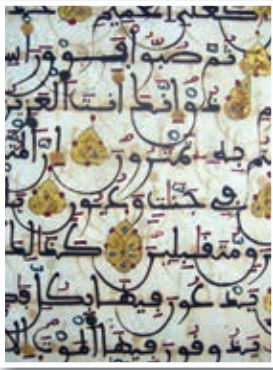 كغلي الحميم
ثم صبوا فوق راس
ذق انك انت العز
م به تمترون ان المت
في جنت وعيون
رق متقبلين كذلك
يدعون فيها بكل ف
يذوقون فيها الموت الا